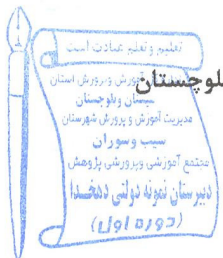 تعلیم و تعلم عبادت است
آموزش و پرورش استان
سیستان وبلوچستان
لوچستان
مدیریت آموزش و پرورش شهرستان
سیب وسوران
مجتمع آموزشی وپرورشی پژوهش
دبیرستان نمونه دولتی دهخدا
(دوره اول)